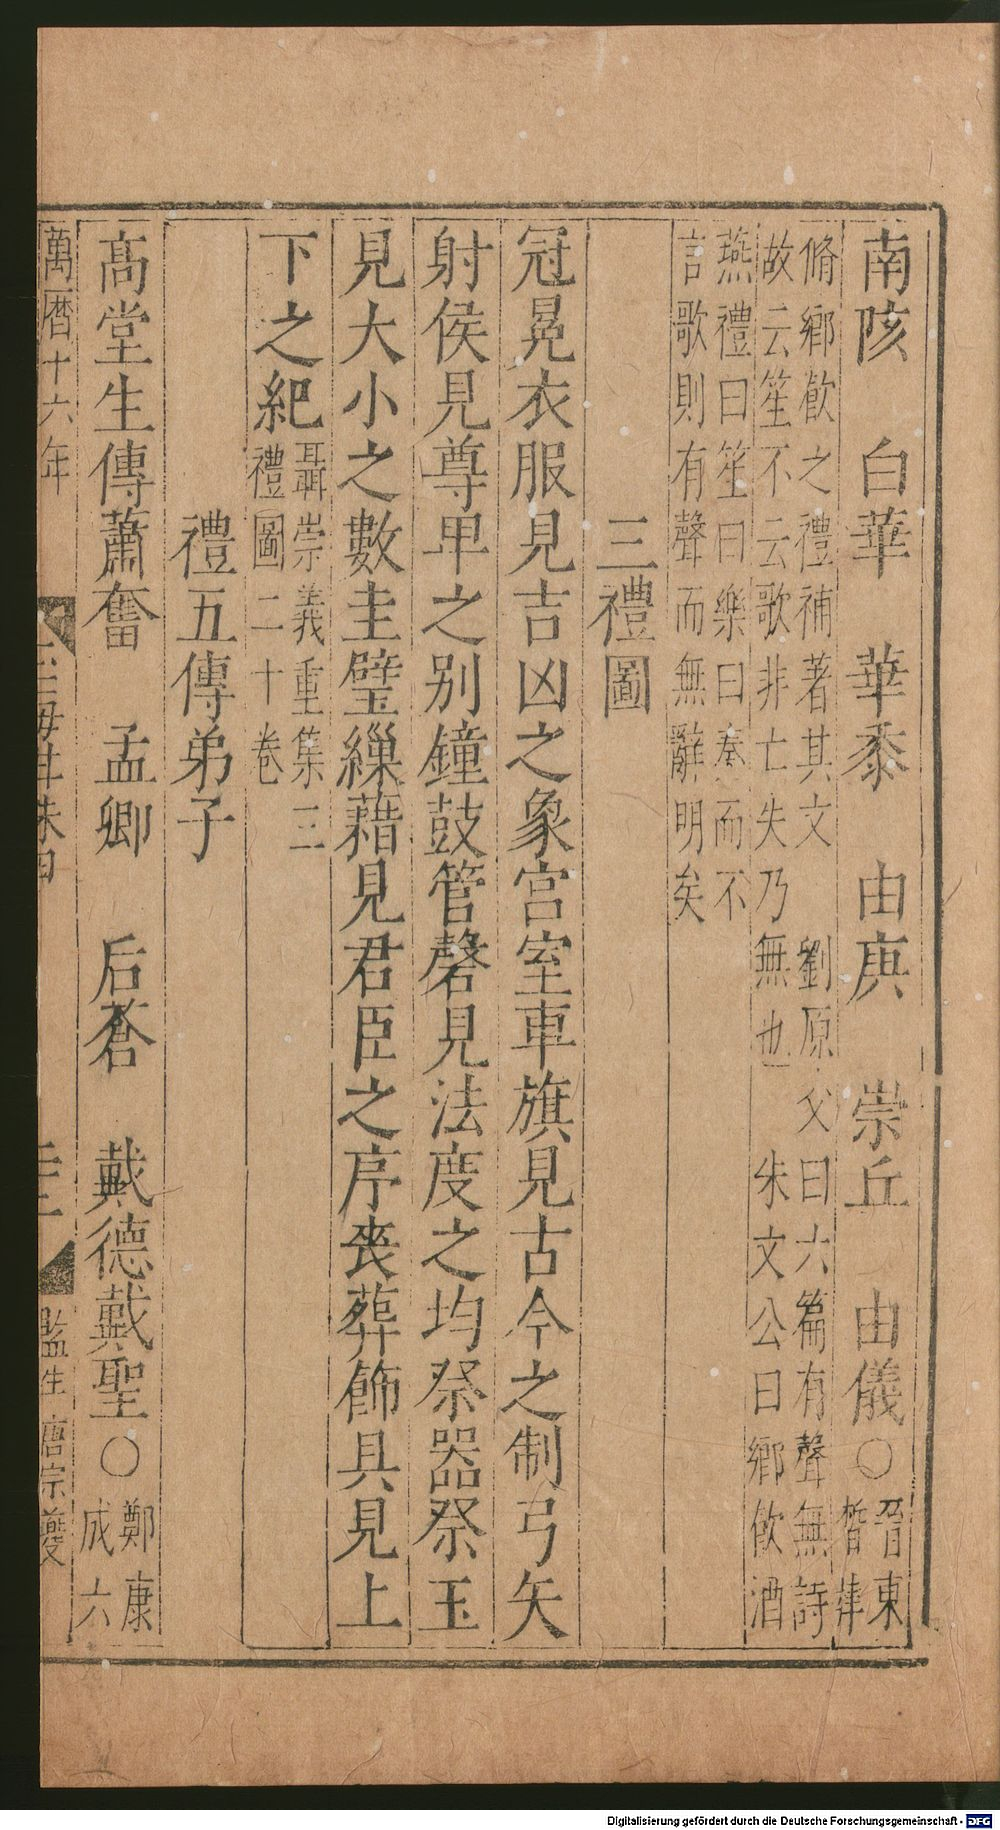 南陔　白華　華黍　由庚　崇丘　由儀○晉東
皙
脩鄉飲之禮補著其文　劉原父曰六篇有聲無詩
故云笙不云歌非亡失乃無也　朱文公曰鄉飲酒
燕禮曰笙曰樂曰奏而不
言歌則有聲而無辭明矣
三禮圖
冠冕衣服見吉凶之象宮室車旗見古今之制弓矢
射侯見尊卑之别鐘鼓管磬見法度之均祭器祭玉
見大小之數圭璧繅藉見君臣之序喪葬飾具見上
下之紀聶崇義重集三
禮圖二十卷
禮五傳弟子
高堂生傳蕭奮　孟卿　后蒼　戴德戴聖○鄭康
成六
萬曆十六年
玉海
監生唐宗
Digitalisierung gefördert durch die Deutsche Forschungsgemeinschaft - DFG